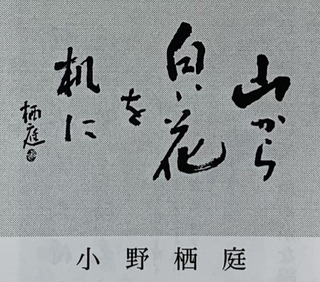 山から
白い花
を
机に
栖庭
小野栖庭